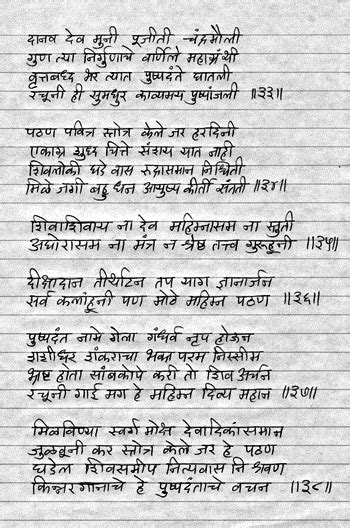 दानव देव मुनी पूजीती चंद्रमौली
गुण त्या निर्गुणाचे वर्णिले महाग्रंथी
वृत्तबध्द भर त्यात पुष्पदंते घातली
रचूनी ही सुमधुर काव्यमय पुष्पांजली ॥३३॥
पठण पवित्र स्तोत्र केले जर हरदिनी
एकाग्र शुध्द चित्ते संशय यात नाही
शिवलोकी घडे वास रुद्रासमान निश्चिती
मिळे जगी बहु धन आयुष्य कीर्ती संतती ॥३४॥
शिवाशिवाय ना देव महिम्नासम ना स्तुती
अघोरासम ना मंत्र न श्रेष्ठ तत्त्व गुरूहूनी ॥३५॥
दीक्षादान तीर्थाटन तप याग ज्ञानार्जन
सर्व कलांहूनी पण मोठे महिम्न पठण ॥३६॥
पुष्पदंत नामे गेला गंधर्व नृप होऊन
शशीधर शंकराचा भक्त परम निस्सीम
भ्रष्ट होता सांबकोपे करी तो शिव अर्चन
रचूनी गाई मग हे महिम्न दिव्य महान ॥३७॥
मिळविण्या स्वर्ग मोक्ष देवादिकांसमान
जुळवूनी कर स्तोत्र केले जर हे पठण
घडेल शिवसमीप नित्यवास नि श्रवण
किन्नरगानाचे हे पुष्पदंताचे वचन ॥३८॥